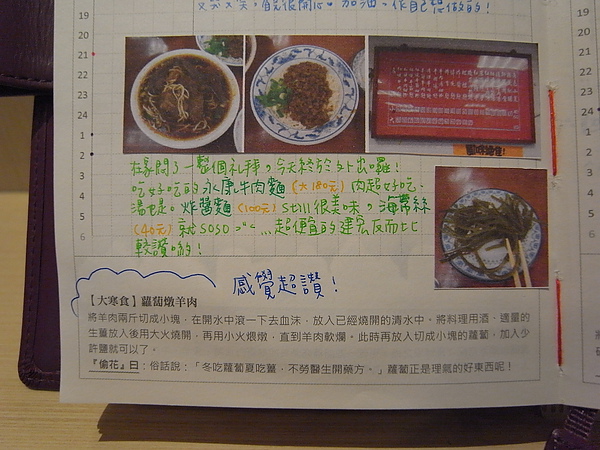 19
20
21
22
23
24
1
2
3
4
5
6
又哭又笑,自說很開心。加油,作自己想做的!
在家悶了一整個礼拜,今天終於外出囉!
吃好吃的永康牛肉麵(大180元)肉超好吃、
湯也是。炸醬麵(100元)still很美味,海帶絲
(40元)就soso…超便宜的建宏反而比
較讚喲!
感覺超讚!
【大寒食】蘿蔔燉羊肉
將羊肉兩斤切成小塊,在開水中滾一下去血沫,放入已經燒開的清水中。將料理用酒、適量的
生薑放入後用大火燒開,再用小火煨燉,直到羊肉軟爛。此時再放入切成小塊的蘿蔔,加入少
許鹽就可以了。
『偷花』曰:俗話說:「冬吃蘿蔔夏吃薑,不勞醫生開藥方。」蘿蔔正是理氣的好東西呢!
24